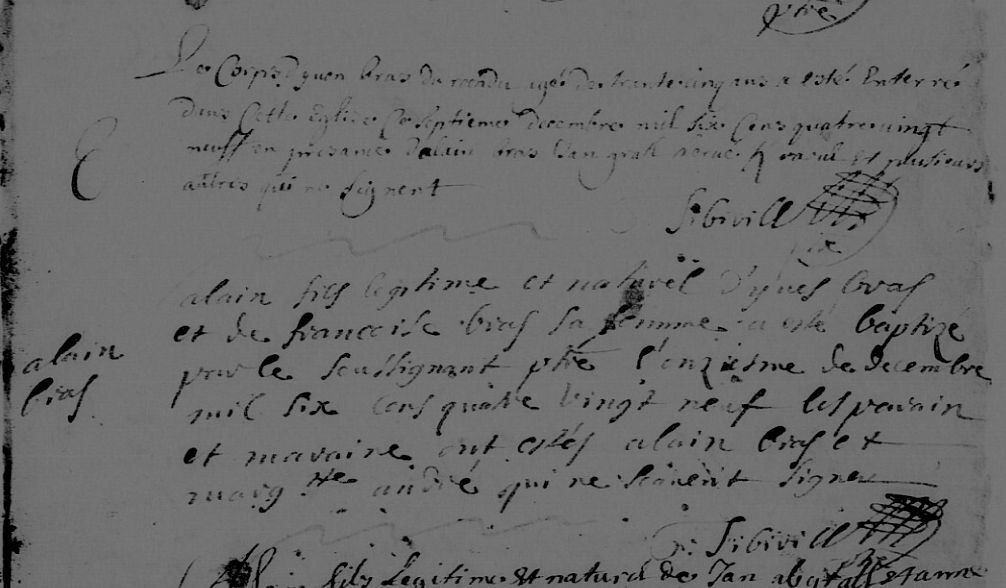 ptre
Le Corps d'yuen bras du agé de trante cinq ans a esté Enterré
dans Cette Eglise Ce septieme decembre mil six Cens quatre vingt
neuff en presance d'alain bras et plusieurs
autres qui ne signent
Sibivill
alain fils legitime et naturel d'yves bras
et de francoise bras sa femme a esté baptizé
par le soussignant ptre l'onziesme de decembre
alain
bras
mil six Cens quatre vingt neuf les parain
et maraine ont estés alain bras et
marg tte andré qui ne scavent signer
Sibivill
fils Legitime et naturel de Jan